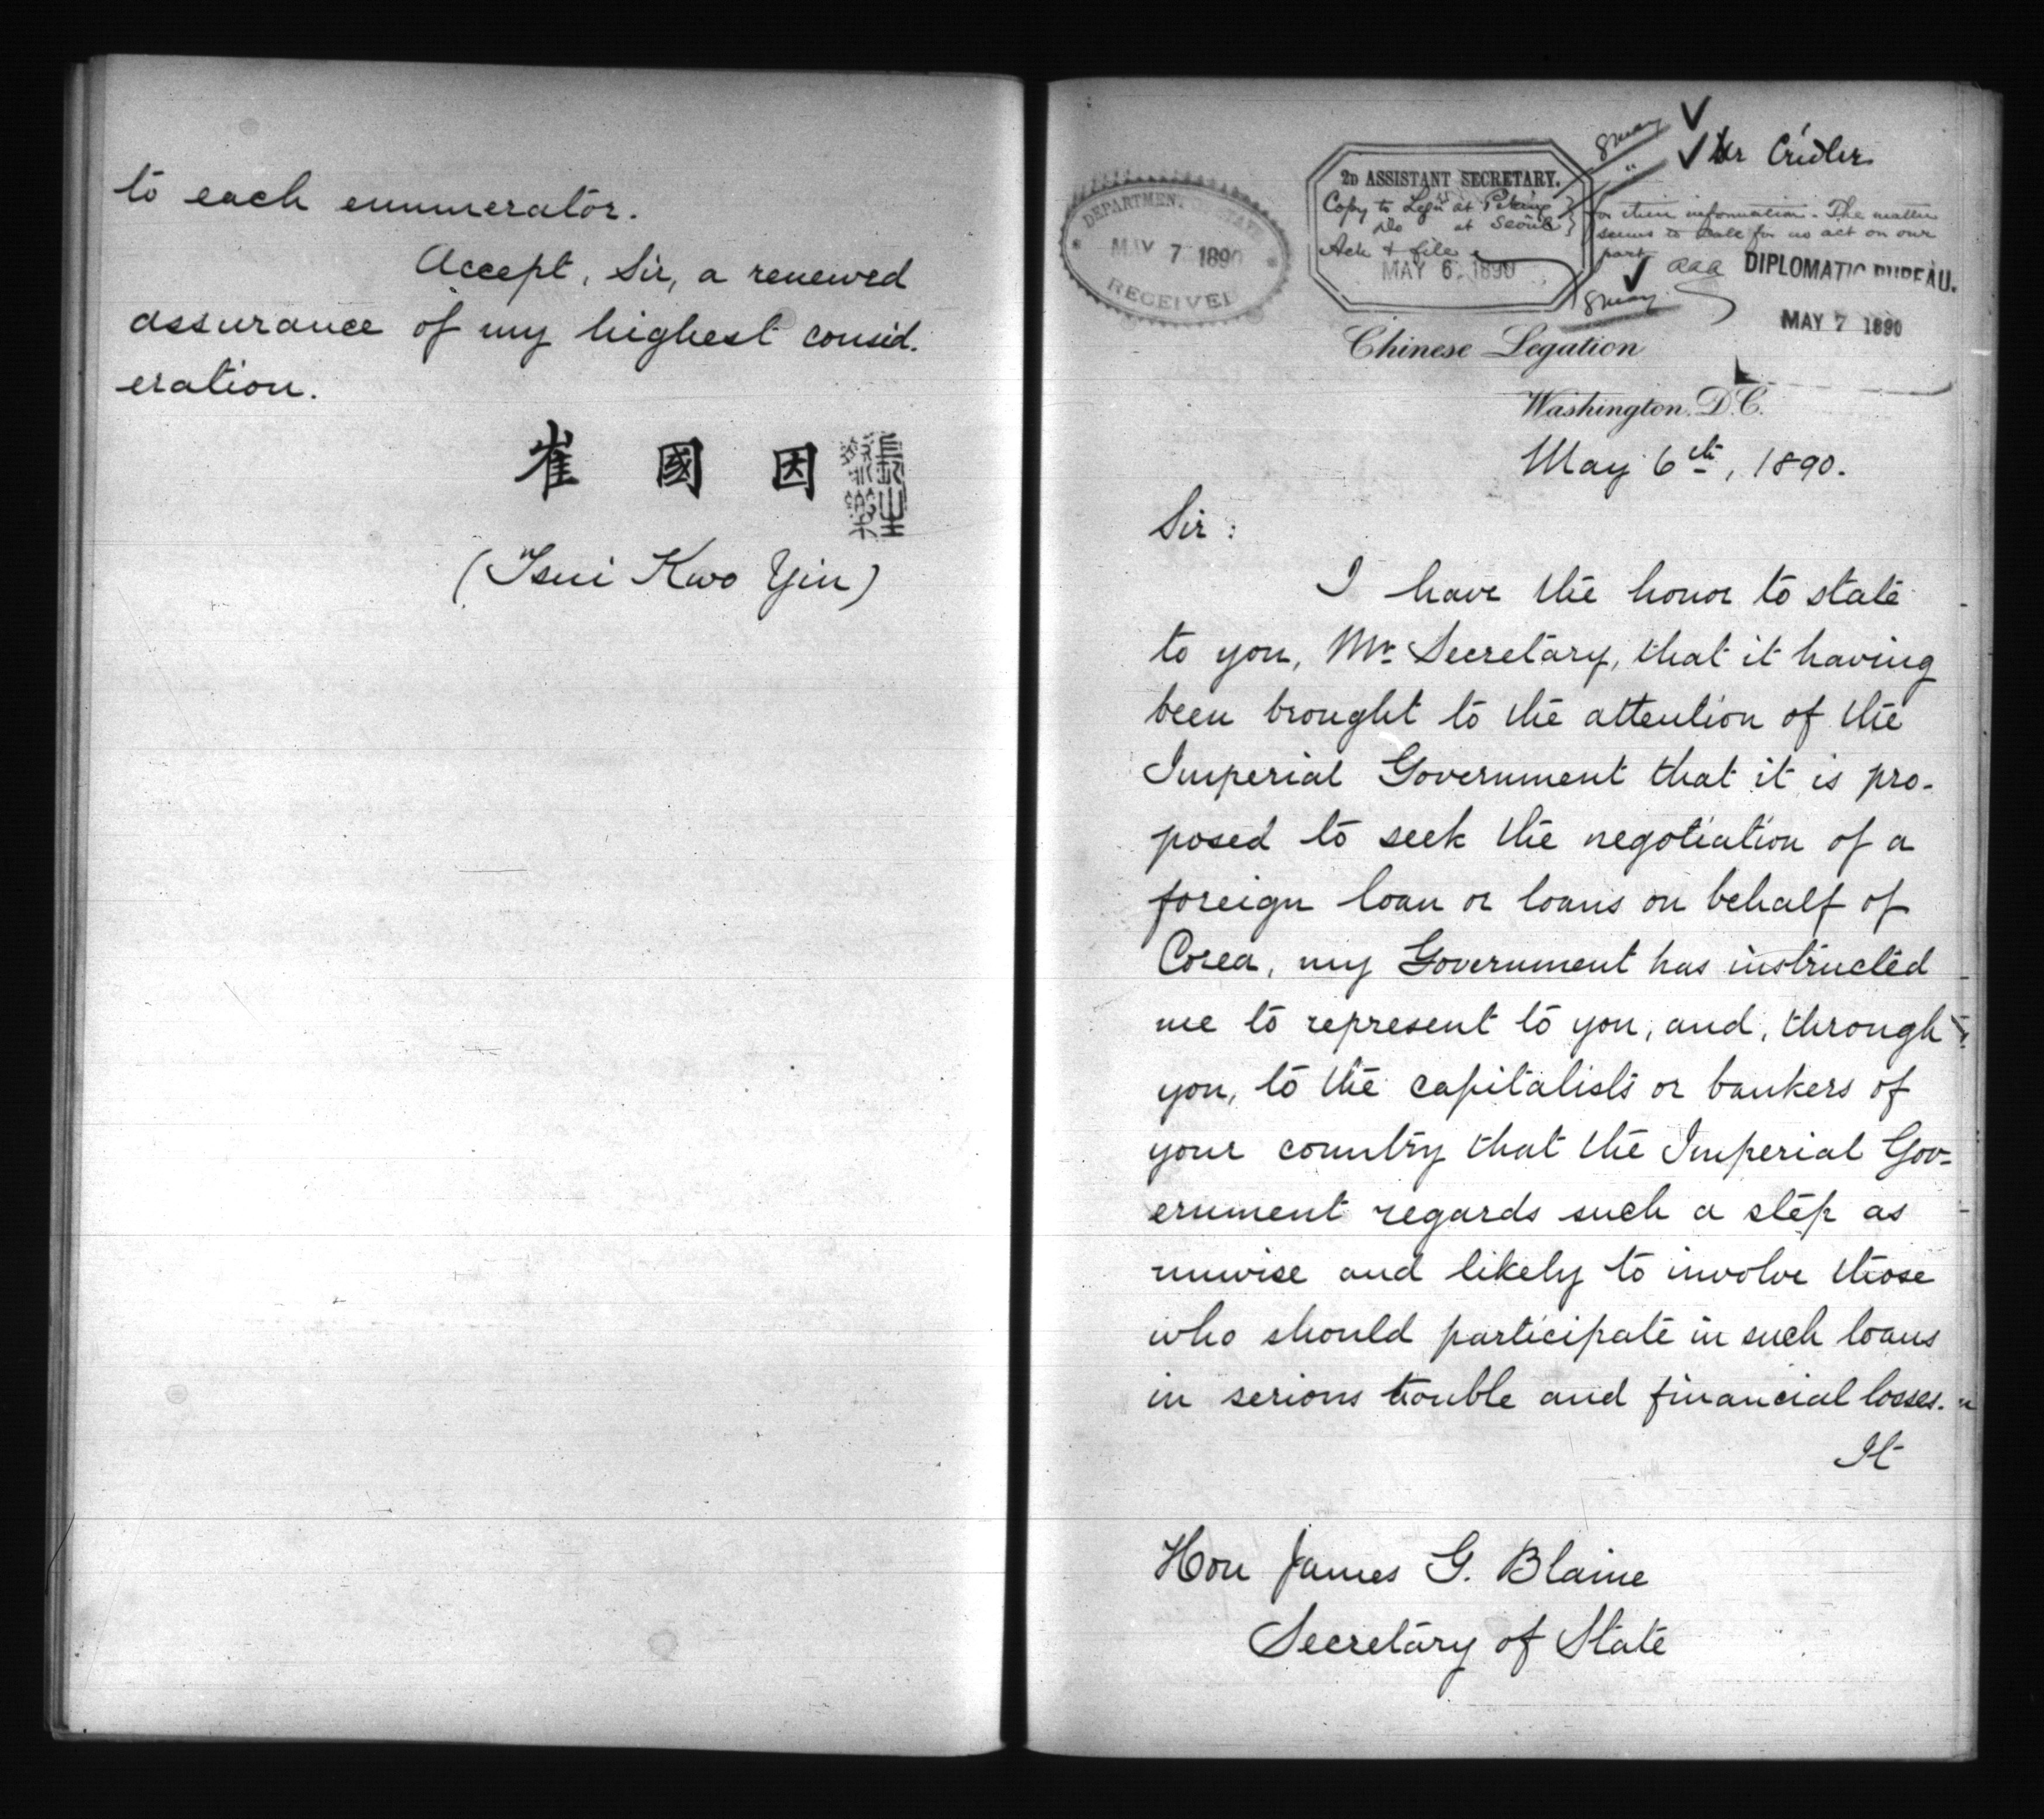 to each enumerator.
Accept, Sir, a renewed
assurance of my highest consid.
eration.
崔 國 因
(Tsui Kwo Yin)
DEPARTMENT OF STATE
MAY 7 1890
RECEIVED
2D ASSISTANT SECRETARY.
Copy to Legn at Peking
Do at Seoul
Ack & file
MAY 6 1890
8 May
Mr Cridler
for their information. The matter
seems to call for no act on our
part
aaa
8 May
DIPLOMATIC BUREAU.
MAY 7 1890
Chinese Legation
Washington. D.C.
May 6th, 1890.
Sir:
I have the honor to state
to you, Mr Secretary, that it having
been brought to the attention of the
Imperial Government that it is pro-
posed to seek the negotiation of a
foreign loan or loans on behalf of
Corea, my Government has instructed
me to represent to you, and, through
you, to the capitalists or bankers of
your country that the Imperial Gov=
ernment regards such a step as
unwise and likely to involve those
who should participate in such loans
in serious trouble and financial losses.
It
Hon James G. Blaine
Secretary of State